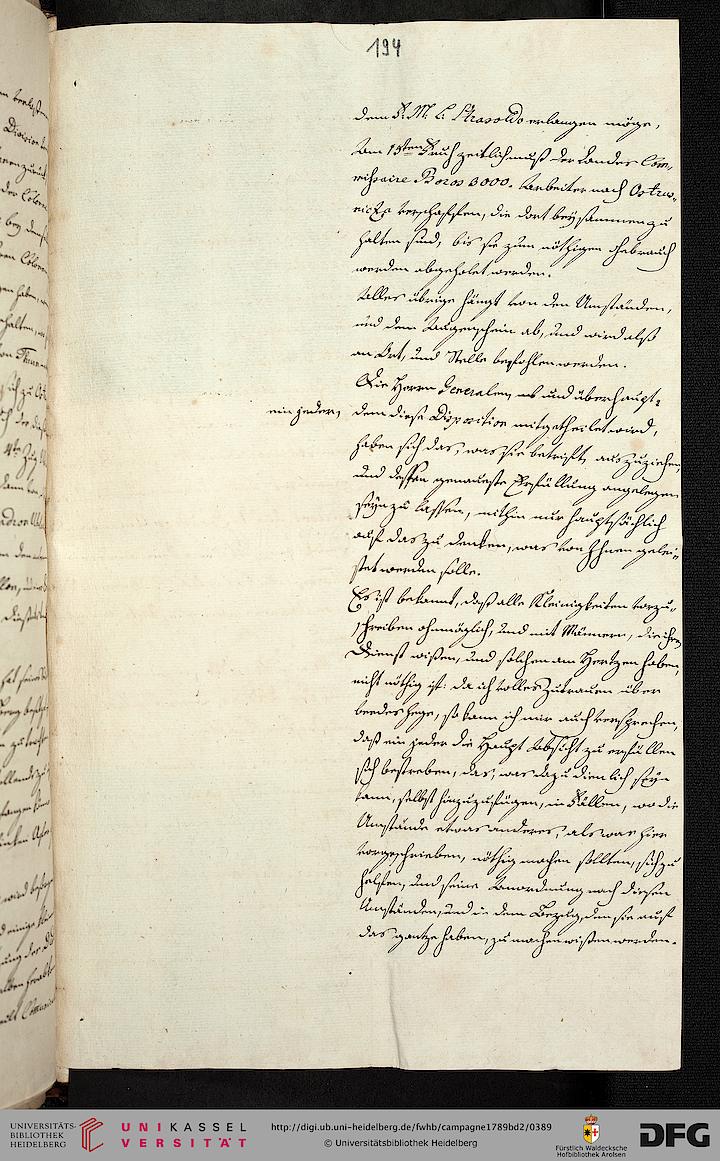 194
dem F. M. L. Strasoldo erlangen möge,
Am 13ten Fruh zeitlich muß der Landes Com¬
missaire Boros 3000. Arbeiter nach Ostrus¬
niza verschaffen, die dort beysammen zu
halten sind, bis sie zum nöthigen Gebrauch
werden abgeholet werden.
Alles übrige hängt von den Umständen,
und dem Augenschein ab, und wird also
an Ort, und Stelle befohlen werden.
Die Herrn Generalen, und überhaupt
ein jeder,
dem diese Disposition mitgetheilet wird,
haben sich das, was sie betrift, auszuziehen,
und dessen genaueste Erfüllung angelegen
seyn zu lassen, mithin nur hauptsächlich
auf das zu denken, was von Ihnen gelei¬
stet werden solle.
Es ist bekannt, daß alle Kleinigkeiten vorzu¬
schreiben ohnmöglich, und mit Männern, die ihren
Dienst wißen, und solchen am Hertzen haben,
nicht nöthig ist: da ich volles Zutrauen über
beedes hege, so kann ich mir auch versprechen,
daß ein jeder die Haupt Absicht zu erfüllen
sich bestreben, das, was dazu dienlich seyn
kann, selbst hinzuzufügen, in Fällen, wo die
Umstände etwas anderes, als was hier
vorgeschrieben, nöthig machen sollten, sich zu
helfen, und seine Anordnung nach diesen
Umständen, und in dem Bezug, den sie auf
das gantze haben, zu machen wißen werden.
UNIVERSITÄTS-
BIBLIOTHEK
HEIDELBERG
UNIKASSEL
VERSITÄT
http://digi.ub.uni-heidelberg.de/fwhb/campagne1789bd2/0389
© Universitätsbibliothek Heidelberg
Fürstlich Waldecksche
Hofbibliothek Arolsen
DFG